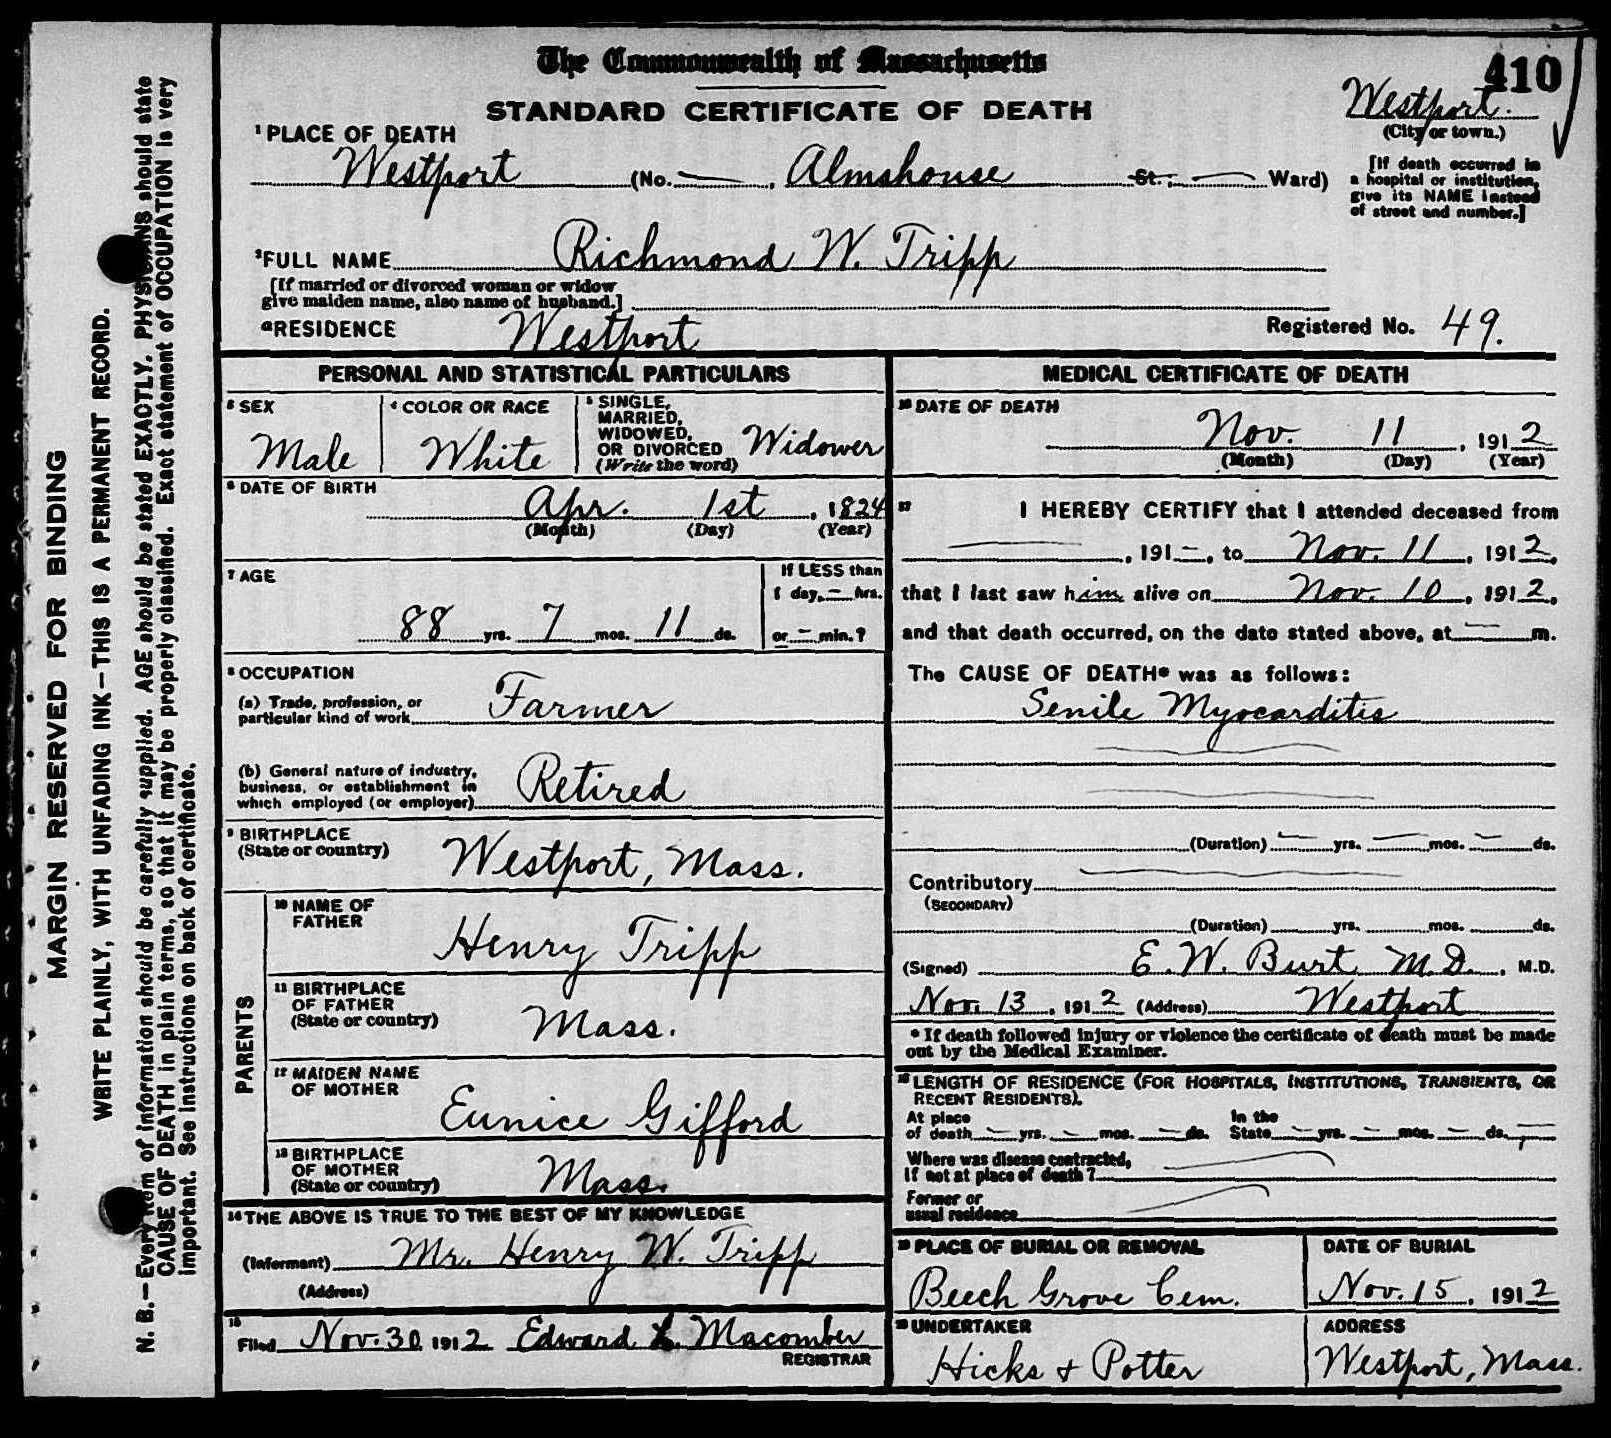 The Commonwealth of Massachusetts
410
STANDARD CERTIFICATE OF DEATH
Westport.
(City or town.)
1 PLACE OF DEATH
Westport (No. — , Almshouse St.; — Ward)
[If death occurred in
a hospital or institution,
give its NAME instead
of street and number.]
2 FULL NAME Richmond W. Tripp
[If married or divorced woman or widow
give maiden name, also name of husband.]
a RESIDENCE Westport
Registered No. 49.
PERSONAL AND STATISTICAL PARTICULARS
3 SEX
Male
4 COLOR OR RACE
White
5 SINGLE,
MARRIED,
WIDOWED,
OR DIVORCED
(Write the word)
Widower
6 DATE OF BIRTH
Apr. 1st , 1824
(Month) (Day) (Year)
7 AGE
88 yrs. 7 mos. 11 ds.
If LESS than
1 day, — hrs.
or — min.?
8 OCCUPATION
(a) Trade, profession, or
particular kind of work Farmer
(b) General nature of industry,
business, or establishment in
which employed (or employer) Retired
9 BIRTHPLACE
(State or country)
Westport, Mass.
PARENTS
10 NAME OF
FATHER
Henry Tripp
11 BIRTHPLACE
OF FATHER
(State or country)
Mass.
12 MAIDEN NAME
OF MOTHER
Eunice Gifford
13 BIRTHPLACE
OF MOTHER
(State or country)
Mass.
14 THE ABOVE IS TRUE TO THE BEST OF MY KNOWLEDGE
(Informant) Mr. Henry W. Tripp
(Address)
15
Filed Nov. 30, 1912 Edward L. Macomber
REGISTRAR
MEDICAL CERTIFICATE OF DEATH
16 DATE OF DEATH
Nov. 11 , 1912
(Month) (Day) (Year)
17 I HEREBY CERTIFY that I attended deceased from
— , 191 — , to Nov. 11 , 1912,
that I last saw him alive on Nov. 10 , 1912,
and that death occurred, on the date stated above, at — m.
The CAUSE OF DEATH* was as follows:
Senile Myocarditis
(Duration) — yrs. — mos. — ds.
Contributory
(SECONDARY)
(Duration) yrs. mos. ds.
(Signed) E. W. Burt M.D. , M.D.
Nov. 13 , 1912 (Address) Westport
* If death followed injury or violence the certificate of death must be made
out by the Medical Examiner.
18 LENGTH OF RESIDENCE (FOR HOSPITALS, INSTITUTIONS, TRANSIENTS, OR
RECENT RESIDENTS).
At place
of death — yrs. — mos. — ds.
In the
State — yrs. — mos. — ds.
Where was disease contracted,
if not at place of death?
Former or
usual residence
19 PLACE OF BURIAL OR REMOVAL
Beech Grove Cem.
DATE OF BURIAL
Nov. 15 , 1912
20 UNDERTAKER
Hicks & Potter
ADDRESS
Westport, Mass.
MARGIN RESERVED FOR BINDING
WRITE PLAINLY, WITH UNFADING INK—THIS IS A PERMANENT RECORD.
N. B.—Every item of information should be carefully supplied. AGE should be stated EXACTLY. PHYSICIANS should state
CAUSE OF DEATH in plain terms, so that it may be properly classified. Exact statement of OCCUPATION is very
important. See instructions on back of certificate.